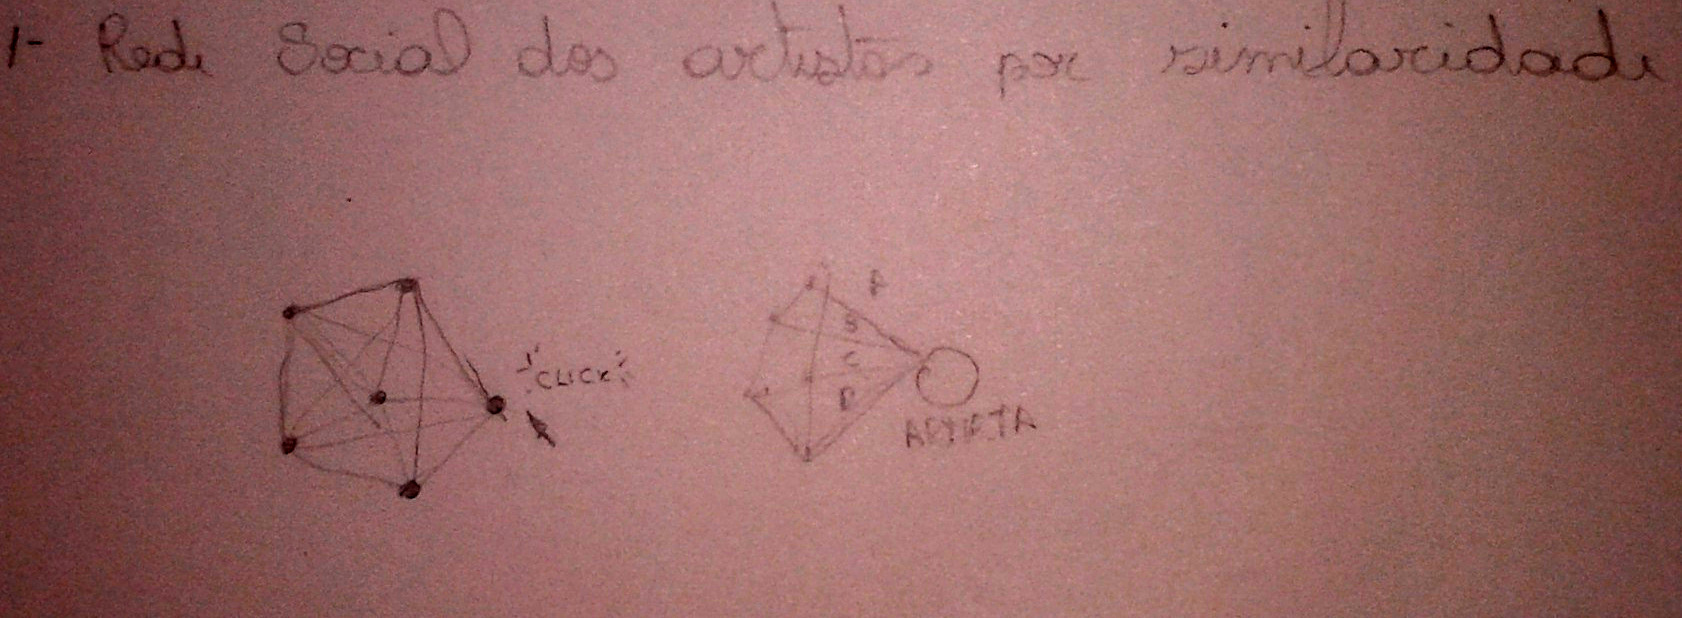 1- Rede Social dos artistas por similaridade
CLICK
A
B
C
D
ARTISTA